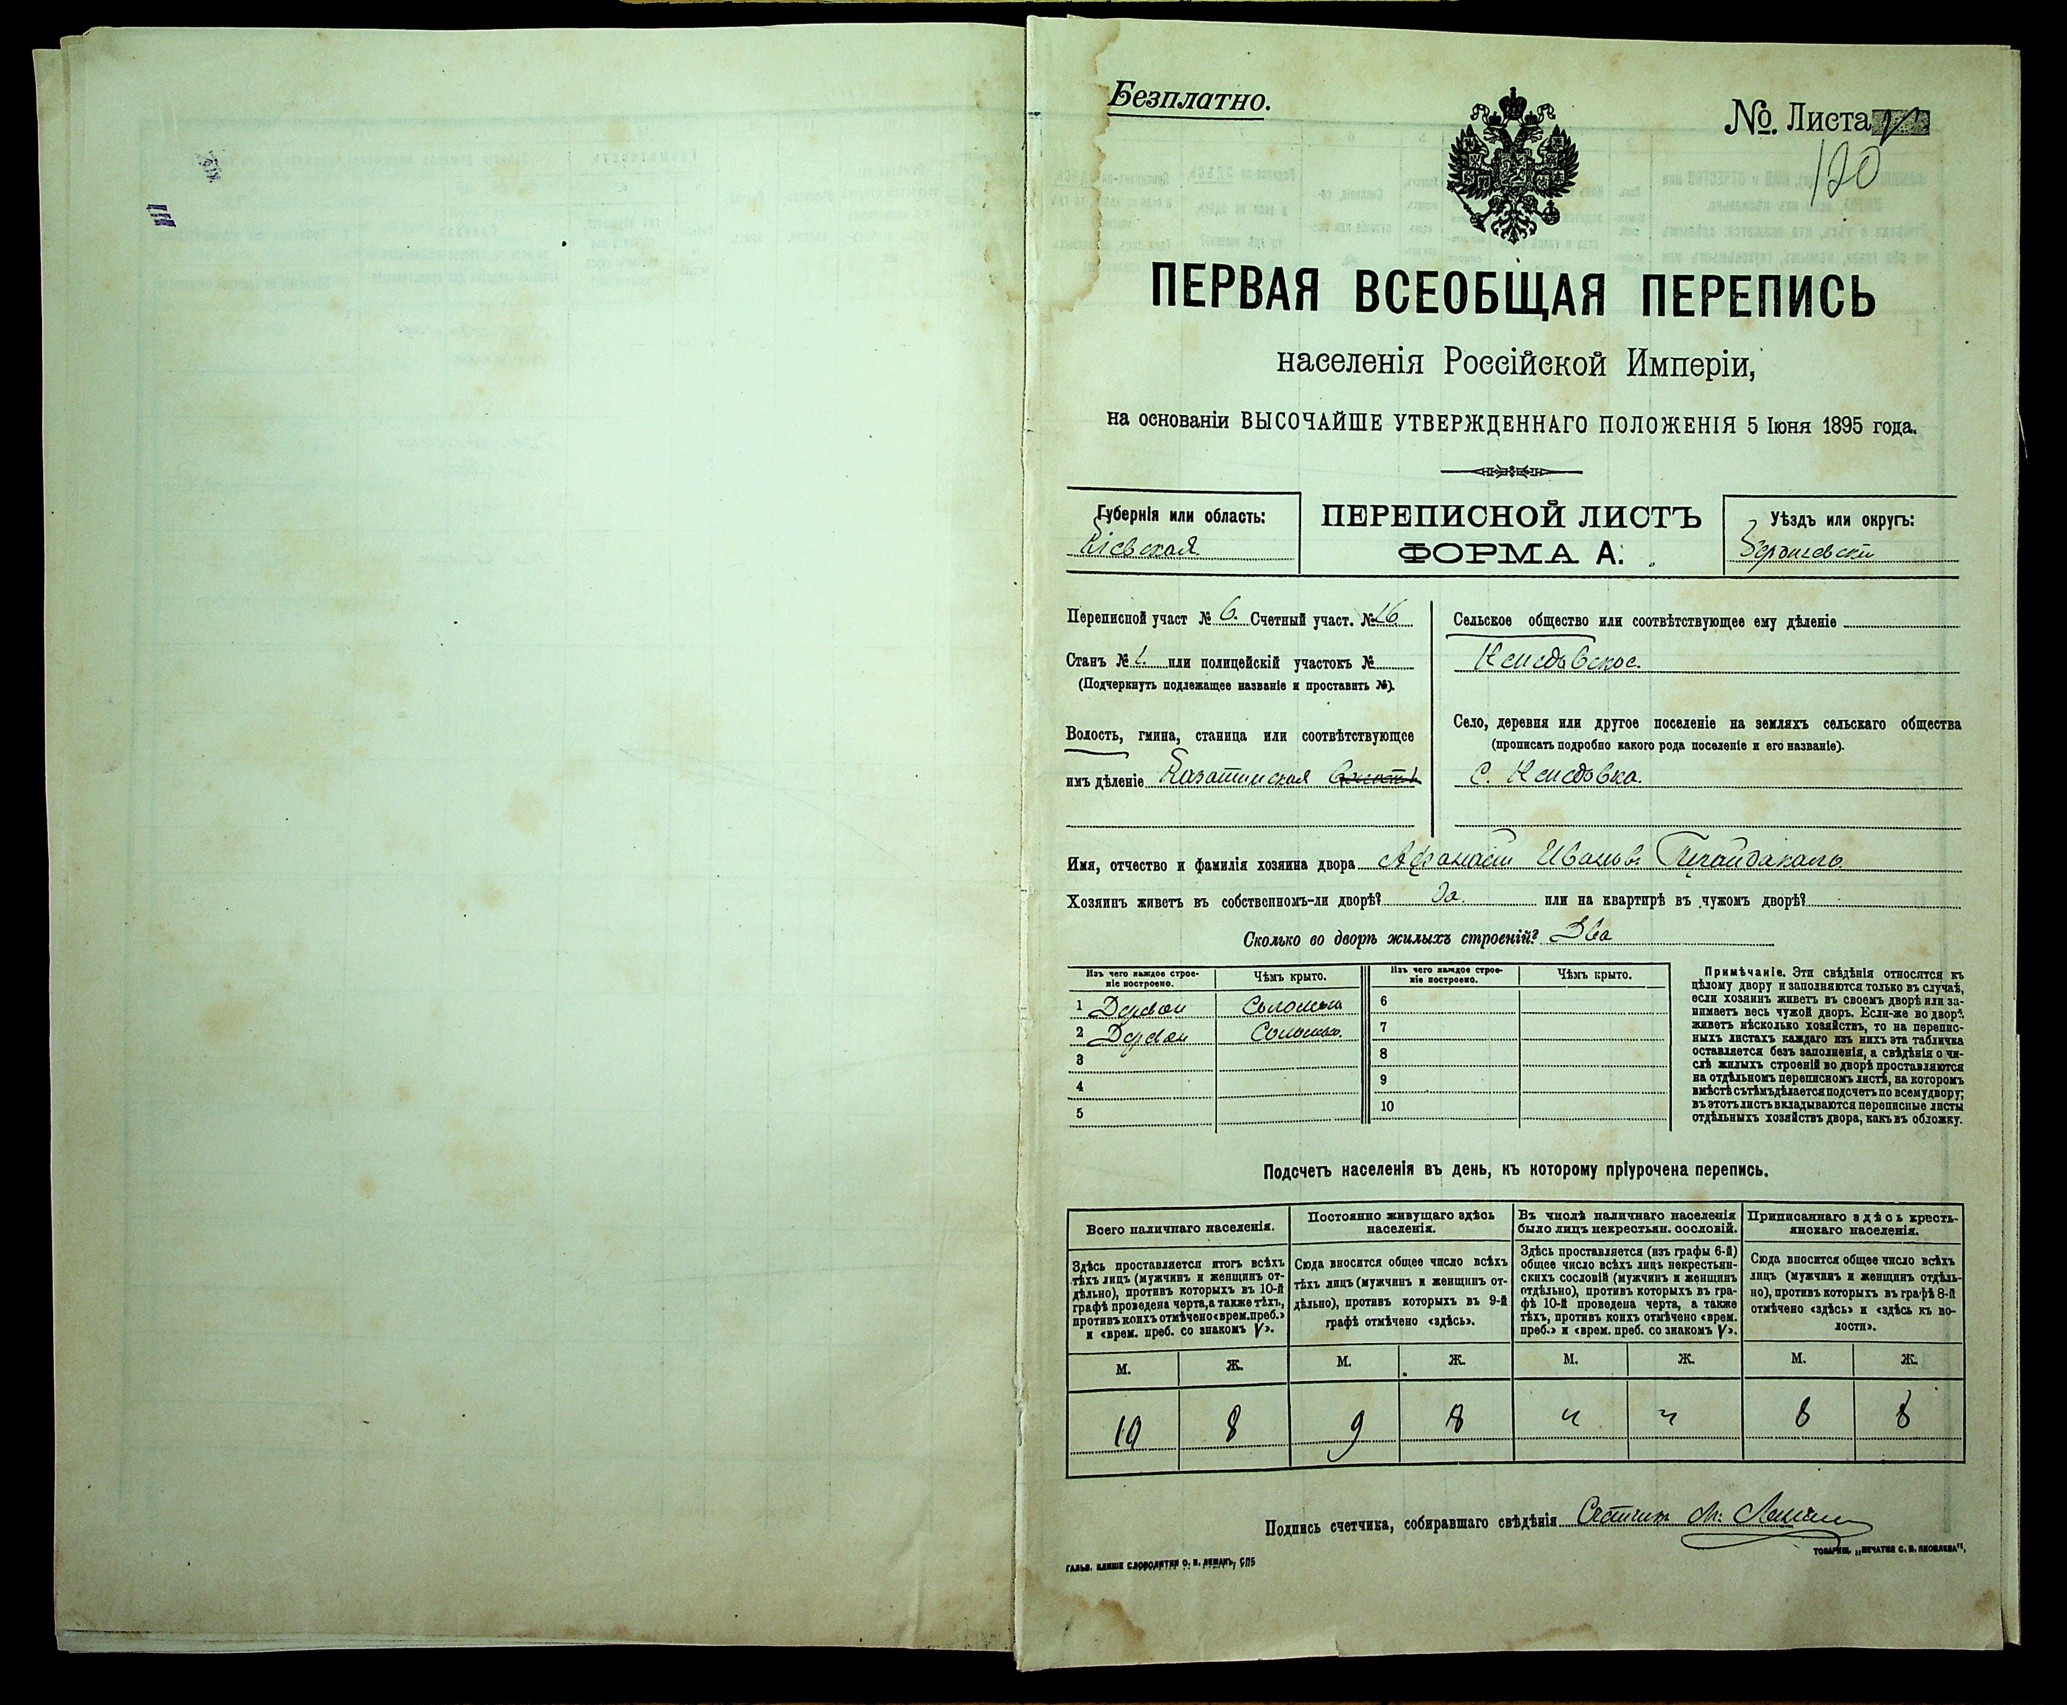 Безплатно.
№. Листа
120
ПЕРВАЯ ВСЕОБЩАЯ ПЕРЕПИСЬ
населенія Россійской Имперіи,
на основаніи ВЫСОЧАЙШЕ УТВЕРЖДЕННАГО ПОЛОЖЕНІЯ 5 Іюня 1895 года.
Губернія или область:
Кіевская
ПЕРЕПИСНОЙ ЛИСТЪ
ФОРМА А.
Уѣздъ или округъ:
Бердичевскій
Переписной участ № 6. Счетный участ. № 16.
Станъ № 1. или полицейскій участокъ №
(Подчеркнуть подлежащее названіе и проставить №).
Волость, гмина, станица или соотвѣтствующее
имъ дѣленіе Казатинская
Сельское общество или соотвѣтствующее ему дѣленіе
Село, деревня или другое поселеніе на земляхъ сельскаго общества
(прописать подробно какого рода поселеніе и его названіе).
с.
Имя, отчество и фамилія хозяина двора Афанасій Иванов
Хозяинъ живетъ въ собственномъ-ли дворѣ? Да. или на квартирѣ въ чужомъ дворѣ?
Сколько во дворѣ жилыхъ строеній? Два
Изъ чего каждое строеніе построено.
Чѣмъ крыто.
Изъ чего каждое строеніе построено.
Чѣмъ крыто.
1 Дерван Соломою 6
2 Дерван Соломою. 7
3 8
4 9
5 10
Примѣчаніе. Эти свѣдѣнія относятся къ
цѣлому двору и заполняются только въ случаѣ,
если хозяинъ живетъ въ своемъ дворѣ или за-
нимаетъ весь чужой дворъ. Если-же во дворѣ
живетъ нѣсколько хозяйствъ, то на перепис-
ныхъ листахъ каждаго изъ нихъ эта табличка
оставляется безъ заполненія, а свѣдѣнія о чи-
слѣ жилыхъ строеній во дворѣ проставляются
на отдѣльномъ переписномъ листѣ, на которомъ
вмѣстѣ съ тѣмъ дѣлается подсчетъ по всему двору;
въ этотъ листъ вкладываются переписные листы
отдѣльныхъ хозяйствъ двора, какъ въ обложку.
Подсчетъ населенія въ день, къ которому пріурочена перепись.
Всего наличнаго населенія.
Здѣсь проставляется итогъ всѣхъ
тѣхъ лицъ (мужчинъ и женщинъ от-
дѣльно), противъ которыхъ въ 10-й
графѣ проведена черта, а также тѣхъ,
противъ коихъ отмѣчено «врем. преб.»
и «врем. преб. со знакомъ V».
Постоянно живущаго здѣсь
населенія.
Сюда вносится общее число всѣхъ
тѣхъ лицъ (мужчинъ и женщинъ от-
дѣльно), противъ которыхъ въ 9-й
графѣ отмѣчено «здѣсь».
Въ числѣ наличнаго населенія
было лицъ некрестьян. сословій.
Здѣсь проставляется (изъ графы 6-й)
общее число всѣхъ лицъ некрестьян-
скихъ сословій (мужчинъ и женщинъ
отдѣльно), противъ которыхъ въ гра-
фѣ 10-й проведена черта, а также
тѣхъ, противъ коихъ отмѣчено «врем.
преб.» и «врем. преб. со знакомъ V».
Приписаннаго здѣсь кресть-
янскаго населенія.
Сюда вносится общее число всѣхъ
лицъ (мужчинъ и женщинъ отдѣль-
но), противъ которыхъ въ графѣ 8-й
отмѣчено «здѣсь» и «здѣсь къ во-
лости».
М. Ж. М. Ж. М. Ж. М. Ж.
10 8 9 8 " " 8 8
Подпись счетчика, собиравшаго свѣдѣнія Счетчик М.
ГАЛЬВ. КЛИШЕ СЛОВОЛИТНИ О. И. ЛЕМАНЪ, СПБ
ТОВАРИЩ. „ПЕЧАТНЯ С. П. ЯКОВЛЕВА",